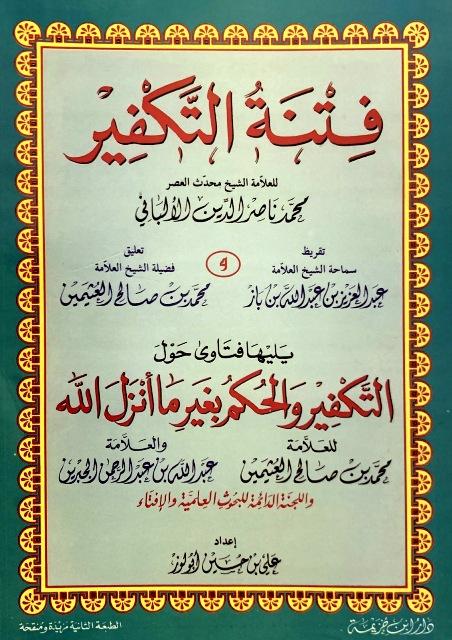 فِتْنَةُ التَّكْفِيرِ
للعلامة الشيخ محدث العصر
محمد ناصر الدين الألباني
تقريظ
سماحة الشيخ العلامة
عبد العزيز بن عبد الله بن باز
و
تعليق
فضيلة الشيخ العلامة
محمد بن صالح العثيمين
يليها فتاوى حول
التكفير والحكم بغير ما أنزل الله
للعلامة
محمد بن صالح العثيمين
والعلامة
عبد الله بن عبد الرحمن الجبرين
واللجنة الدائمة للبحوث العلمية والإفتاء
إعداد
علي بن حسين أبو لوز
دار ابن خزيمة
الطبعة الثانية مزيدة ومنقحة